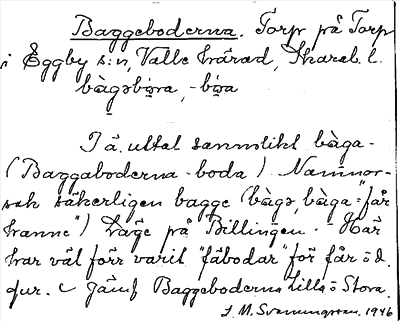 Baggeboderna. Torp på Torp
i Eggby s:n, Valle härad, Skarab. l.
bàgǝbo̱ra, -bo̱a
I ä. uttal sannolikt bàga-
(Baggaboderna -boda) Namnor-
sak säkerligen bagge (bàgǝ, bàga="får
hanne") Läge på Billingen. - Här
har väl förr varit "fäbodar" för får o. d.
jur. Jämf Baggebodarna Lilla o Stora.
J. M. Svenningsson. 1946